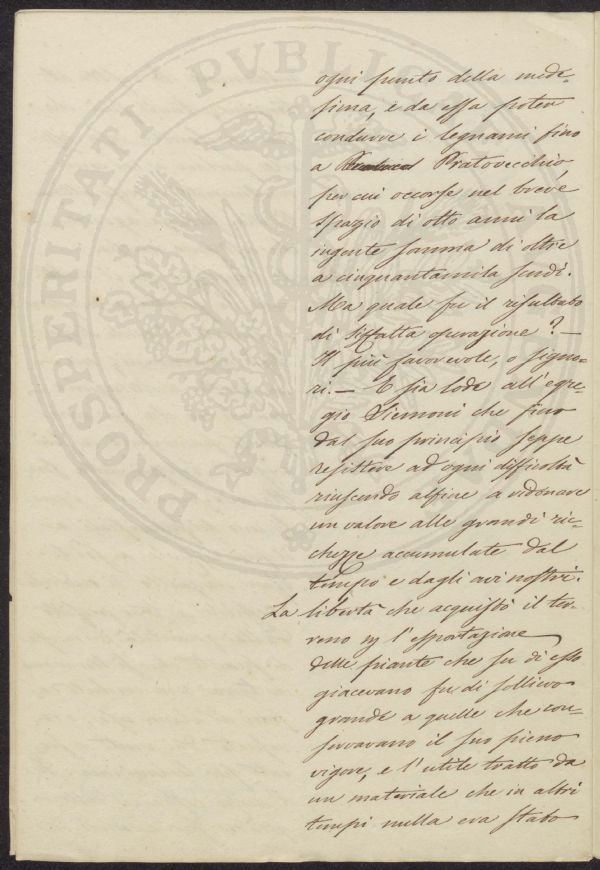 ogni punto della mede-
sima, e da essa poter
condurre i legnami fino
a Pratovecchio,
per cui occorse nel breve
spazio di otto anni la
ingente somma di oltre
a cinquantamila scudi.
Ma quale fu il risultato
di siffatta operazione? —
Il più favorevole, o Signo-
ri. — E sia lode all'egre-
gio Siemoni che fino
dal suo principio seppe
resistere ad ogni difficoltà
riuscendo alfine a ridonare
un valore alle grandi ric-
chezze accumulate dal
tempo e dagli avi nostri.
La libertà che acquistò il ter-
reno per l'esportazione
delle piante che su di esso
giacevano fu di sollievo
grande a quelle che con-
servavano il suo pieno
vigore, e l'utile tratto da
un materiale che in altri
tempi nulla era stato
PROSPERITATI PVBLICAE